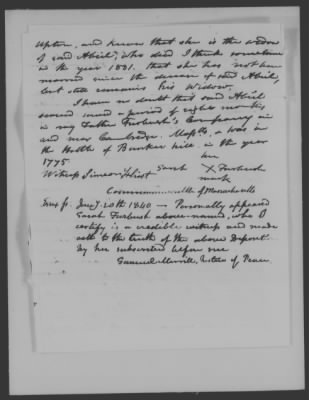 Upton, and know that she is the widow
of said Abiel, who died I think sometime
in the year 1831. that she has not been
married since the decease of said Abiel,
but still remains his Widow.
I have no doubt that said Abiel
served said a period of eight months,
in my Father Furbush's Company in
and near Cambridge. Massts. & was in
the Battle of Bunker hill. in the year
1775
her
Witness Simeon Sarah X Furbush
mark
Commonwealth of Massachusetts
Essex ss. Jany. 20th 1840 — Personally appeared
Sarah Furbush above named, who I
certify is a credible witness and made
oath to the truth of the above Deposit
by her subscribed before me
Samuel Merrill, Justice of Peace